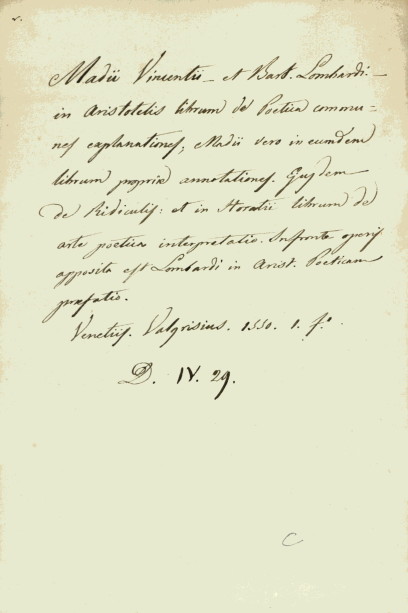 Madii Vincentii - et Bart. Lombardi -
in Aristotelis librum de Poetica commu=
nes explanationes; Madii vero in eumdem
librum propriæ annotationes. Ejusdem
de Ridiculis: et in Horatii librum de
arte poetica interpretatio. In fronte operis
apposita est Lombardi in Arist. Poeticam
præfatio.
Venetiis. Valgrisius. 1550. 1. fº.
D. IV. 29.
C